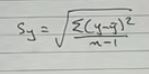 Sy = √(Σ(y-ȳ)² / n-1)